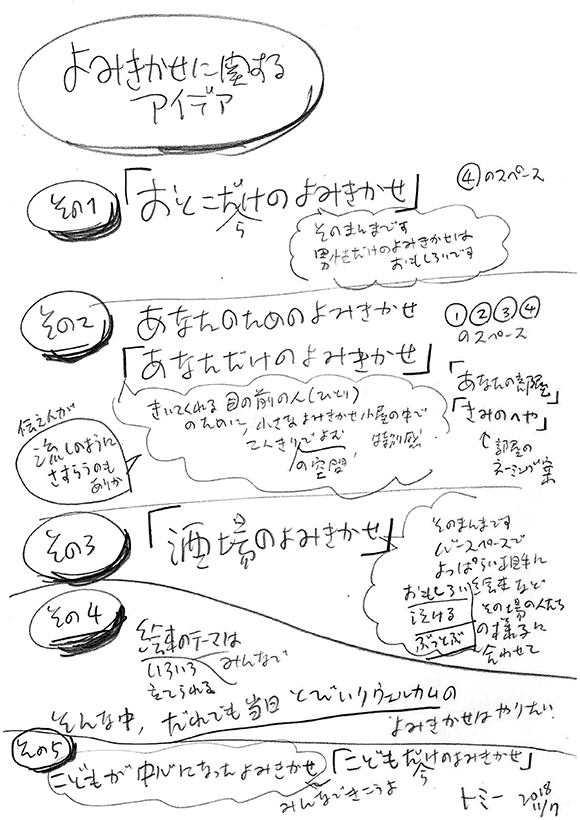 よみきかせに関する
アイデア
その1
「おとこだけのよみきかせ」
ら
④のスペース
そのまんまです
男性だけのよみきかせは
おもしろいです
その2
あなたのためのよみきかせ
「あなただけのよみきかせ」
①②③④
のスペース
きいてくれる目の前の人(ひとり)
のために、小さなよみきかせ小屋の中で
二人きりでよむ
の空間、
特別感!
伝えんが
流しのように
さすらうのも
ありか
「あなたの部屋」
「きみのへや」
↑部屋の
ネーミング案
その3
「酒場のよみきかせ」
そのまんまです
バースペースで
よっぱらい相手に
おもしろい絵本など
泣ける
ぶっとぶ
その場の人たち
の様子に
合わせて
その4
絵本のテーマは
いろいろ
みんなで
立てられる
そんな中、だれでも当日とびいりウェルカムの
よみきかせはやりたい
その5
こどもが中心になったよみきかせ
「こどもだけのよみきかせ」
ら
みんなできこうよ
トミー 2018
11/7